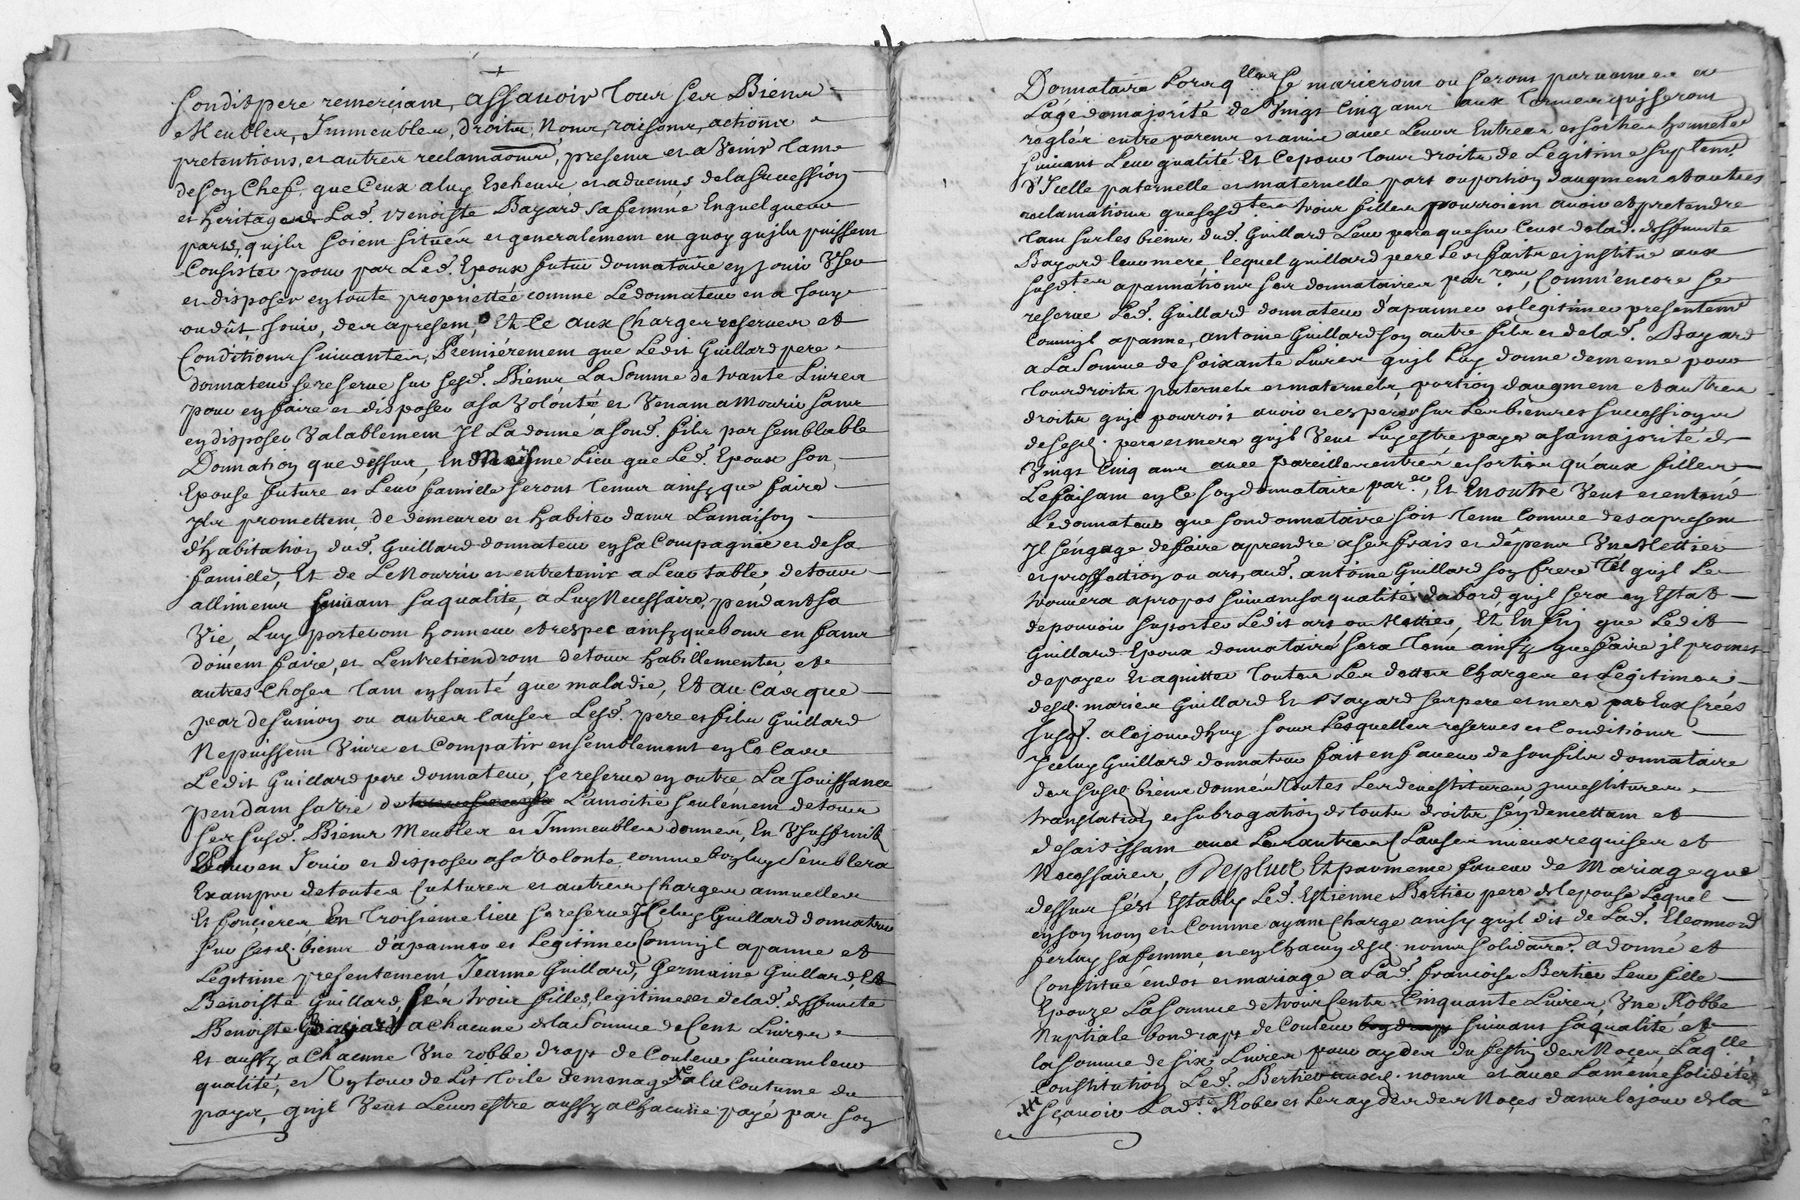 Sondit pere remerciant, assavoir tous ses Biens
Meubles, Immeubles, droits, Noms, raisons, actions
pretentions, et autres reclamaons, presens et a Venir tant
de son Chef que Ceux a luy Escheus et advenus de la Succession
et heritage de Lad. Benoiste Bayard sa femme En quel que
parts, qu'ils soient situés et generalement en quoy qu'ils puissent
Consister pour par Led. Epoux futur donnataire en jouir User
et disposer en toute proprietté comme Le donnateur en a jouy
ou dût jouir, des apresent, Et Ce aux Charges reserves et
Conditions suivantes, Premiérement que Ledit Guillard pere
donnateur se reserve sur sesd. Biens La Somme de trante Livres
pour en faire et disposer a sa Volonté et Venant a Mourir sans
en disposer Valablement Il La donne a sond. fils par semblable
Donnation que dessus, En Mesme Lieu que Led. Epoux son
Epouse future et Leur famille seront tenus ainsy que faire
ils promettent, de demeurer et habiter dans La maison
d'habitation dud. Guillard donnateur en sa Compagnie et de sa
famille, Et de Le Nourrir et entretenir a Leur table de tous
alliments suivant sa qualité, a Luy Necessaire, pendant sa
Vie, Luy porteront honneur et respec ainsy que bons enfans
doivent faire, et L'entretiendront de tous habillements et
autres Choses tant en santé que maladie, Et au Cas que
par desunion ou autres Causes Lesd. pere et fils Guillard
Ne puissent Vivre et Compatir ensemblement en Ce Cas
Ledit Guillard pere donnateur, se reserve en outre La Jouissance
pendant sa Vie de La moitié seulement de tous
ses susd. Biens Meubles et Immeubles donnés, En Usuffruit
Pour en Jouir et disposer a sa Volonté comme bon luy Semblera
Exampt de toutes Cultures et autres Charges annuelles
Et foncieres, En Troisieme lieu se reserve Iceluy Guillard donnateur
sur sesd. biens d'apanner et Legitimer Comm'il apanne et
Legitime presentement Jeanne Guillard, Germaine Guillard, Et
Benoiste Guillard, ses trois filles legitimes et de lad. deffuncte
Benoiste Bayard, a Chacune de la Somme de Cent Livres
Et aussy a Chacune Une robbe draps de Couleur suivant leur
qualité, et Un tour de Lit toile de menage a la Coutume du
païs, qu'il Veut Leur estre aussy a Chacune payé par son
Donnataire Lorsq'lles se marieront ou seront parvenues a
L'age de majorité de Vingt Cinq ans aux termes qui seront
reglés entre parens et amis avec Leurs Entrées et sorties honnetes
suivant Leur qualité Et Ce pour tous droits de Legitime suplemt
d'Icelle paternelle et maternelle part ou portion d'augment et autres
reclamations que sesd.tes trois filles pourroient avoir et pretendre
tant sur les biens dud. Guillard Leur pere que sur Ceux de lad. deffuncte
Bayard leur mere, lequel guillard pere Les faits et institue aux
susd.tes apannations ses donnataires par.res, Comm'encore se
reserve Led. Guillard donnateur d'apanner et legitimer presentemt
Comm'il apanne, antoine Guillard son autre fils et de lad. Bayard
a La Somme de soixante Livres qu'il Luy donne de meme pour
tous droits paternels et maternels, portion d'augment et autres
droits qu'il pourroit avoir et esperer sur Les biens et succession
de sesd. pere et mere qu'il Veut Luy estre payé a sa majorité de
Vingt Cinq ans avec pareilles entrées et sorties qu'aux filles
Le faisant en Ce son donnataire par.er, Et En outre Veut et entend
Le donnateur que son donnataire soit tenu Comme des apresent
Il s'engage de faire aprendre a ses frais et dépens Une Mettier
et proffession ou art, aud. antoine Guillard son frere tél qu'il Le
trouvera apropos suivant sa qualité d'abord qu'il sera en Estat
de pouvoir suporter Ledit art ou Mettier, Et Enfin que Ledit
Guillard Epoux donnataire sera tenu ainsy que faire il promet
de payer Et aquitter toutes Les dettes Charges et Legitimes
desd. mariés Guillard Et Bayard ses pere et mere par Eux Créés
jusq. a Cejourdhuy sous Lesquelles reserves et Conditions
Iceluy Guillard donnateur fait en faveur de son fils donnataire
des susd. biens donnés toutes Les devestitures investitures
translation et subrogation de touts droits s'en demettant et
desaisissant avec Les autres Clauses mieux requises et
Necessaires, Deplus Et par meme faveur de Mariage que
dessus s'est Estably Led. Estienne Bertier pere de l'epouse Lequel
en son nom et Comme ayant Charge ainsy qu'il dit de Lad. Eleonord
ferluy sa femme et en Chacun desd. noms solidaire, a donné et
Constitué en dot et mariage a Lad. francoise Bertier Leur fille
Epouze La somme de trois Cents Cinquante Livres Une Robbe
Nuptiale bon draps de Couleur suivant sa qualité et
la somme de six Livres pour ayder du festin des Noces Laq.lle
Constitution Led. Bertier auxd. noms et avec La meme solidité
Sçavoir Lad.te Robe et Les ayder des Noces dans le jour de la